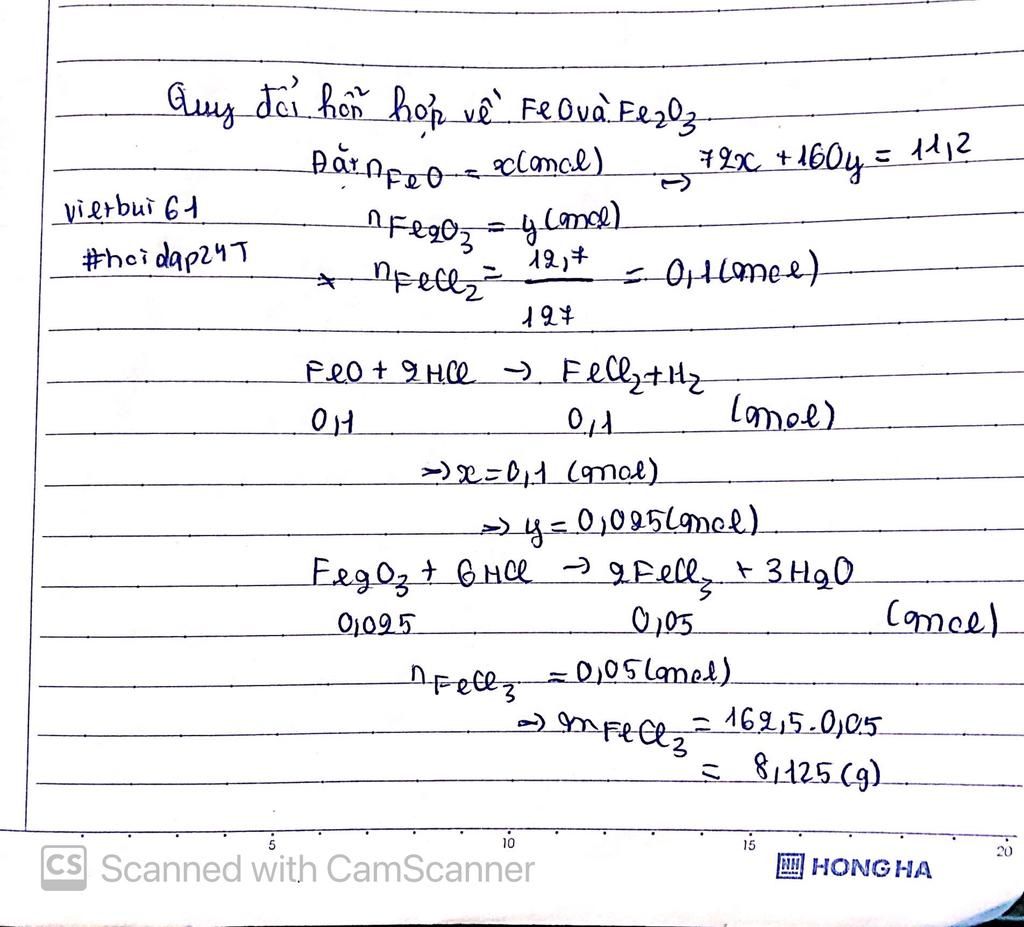 Quy đổi hỗn hợp về FeO và Fe2O3
Đặt nFeO = x(mol) → 72x + 160y = 11,2
vietbui61
nFe2O3 = y(mol)
#hoidap24T
* nFeCl2 = 12,7 / 127 = 0,1(mol)
FeO + 2HCl → FeCl2 + H2
0,1 0,1 (mol)
⇒ x = 0,1 (mol)
⇒ y = 0,025(mol)
Fe2O3 + 6HCl → 2FeCl3 + 3H2O
0,025 0,05 (mol)
nFeCl3 = 0,05(mol)
⇒ mFeCl3 = 162,5.0,05
= 8,125(g)
5 10 15 20
CS Scanned with CamScanner
HH HONG HA